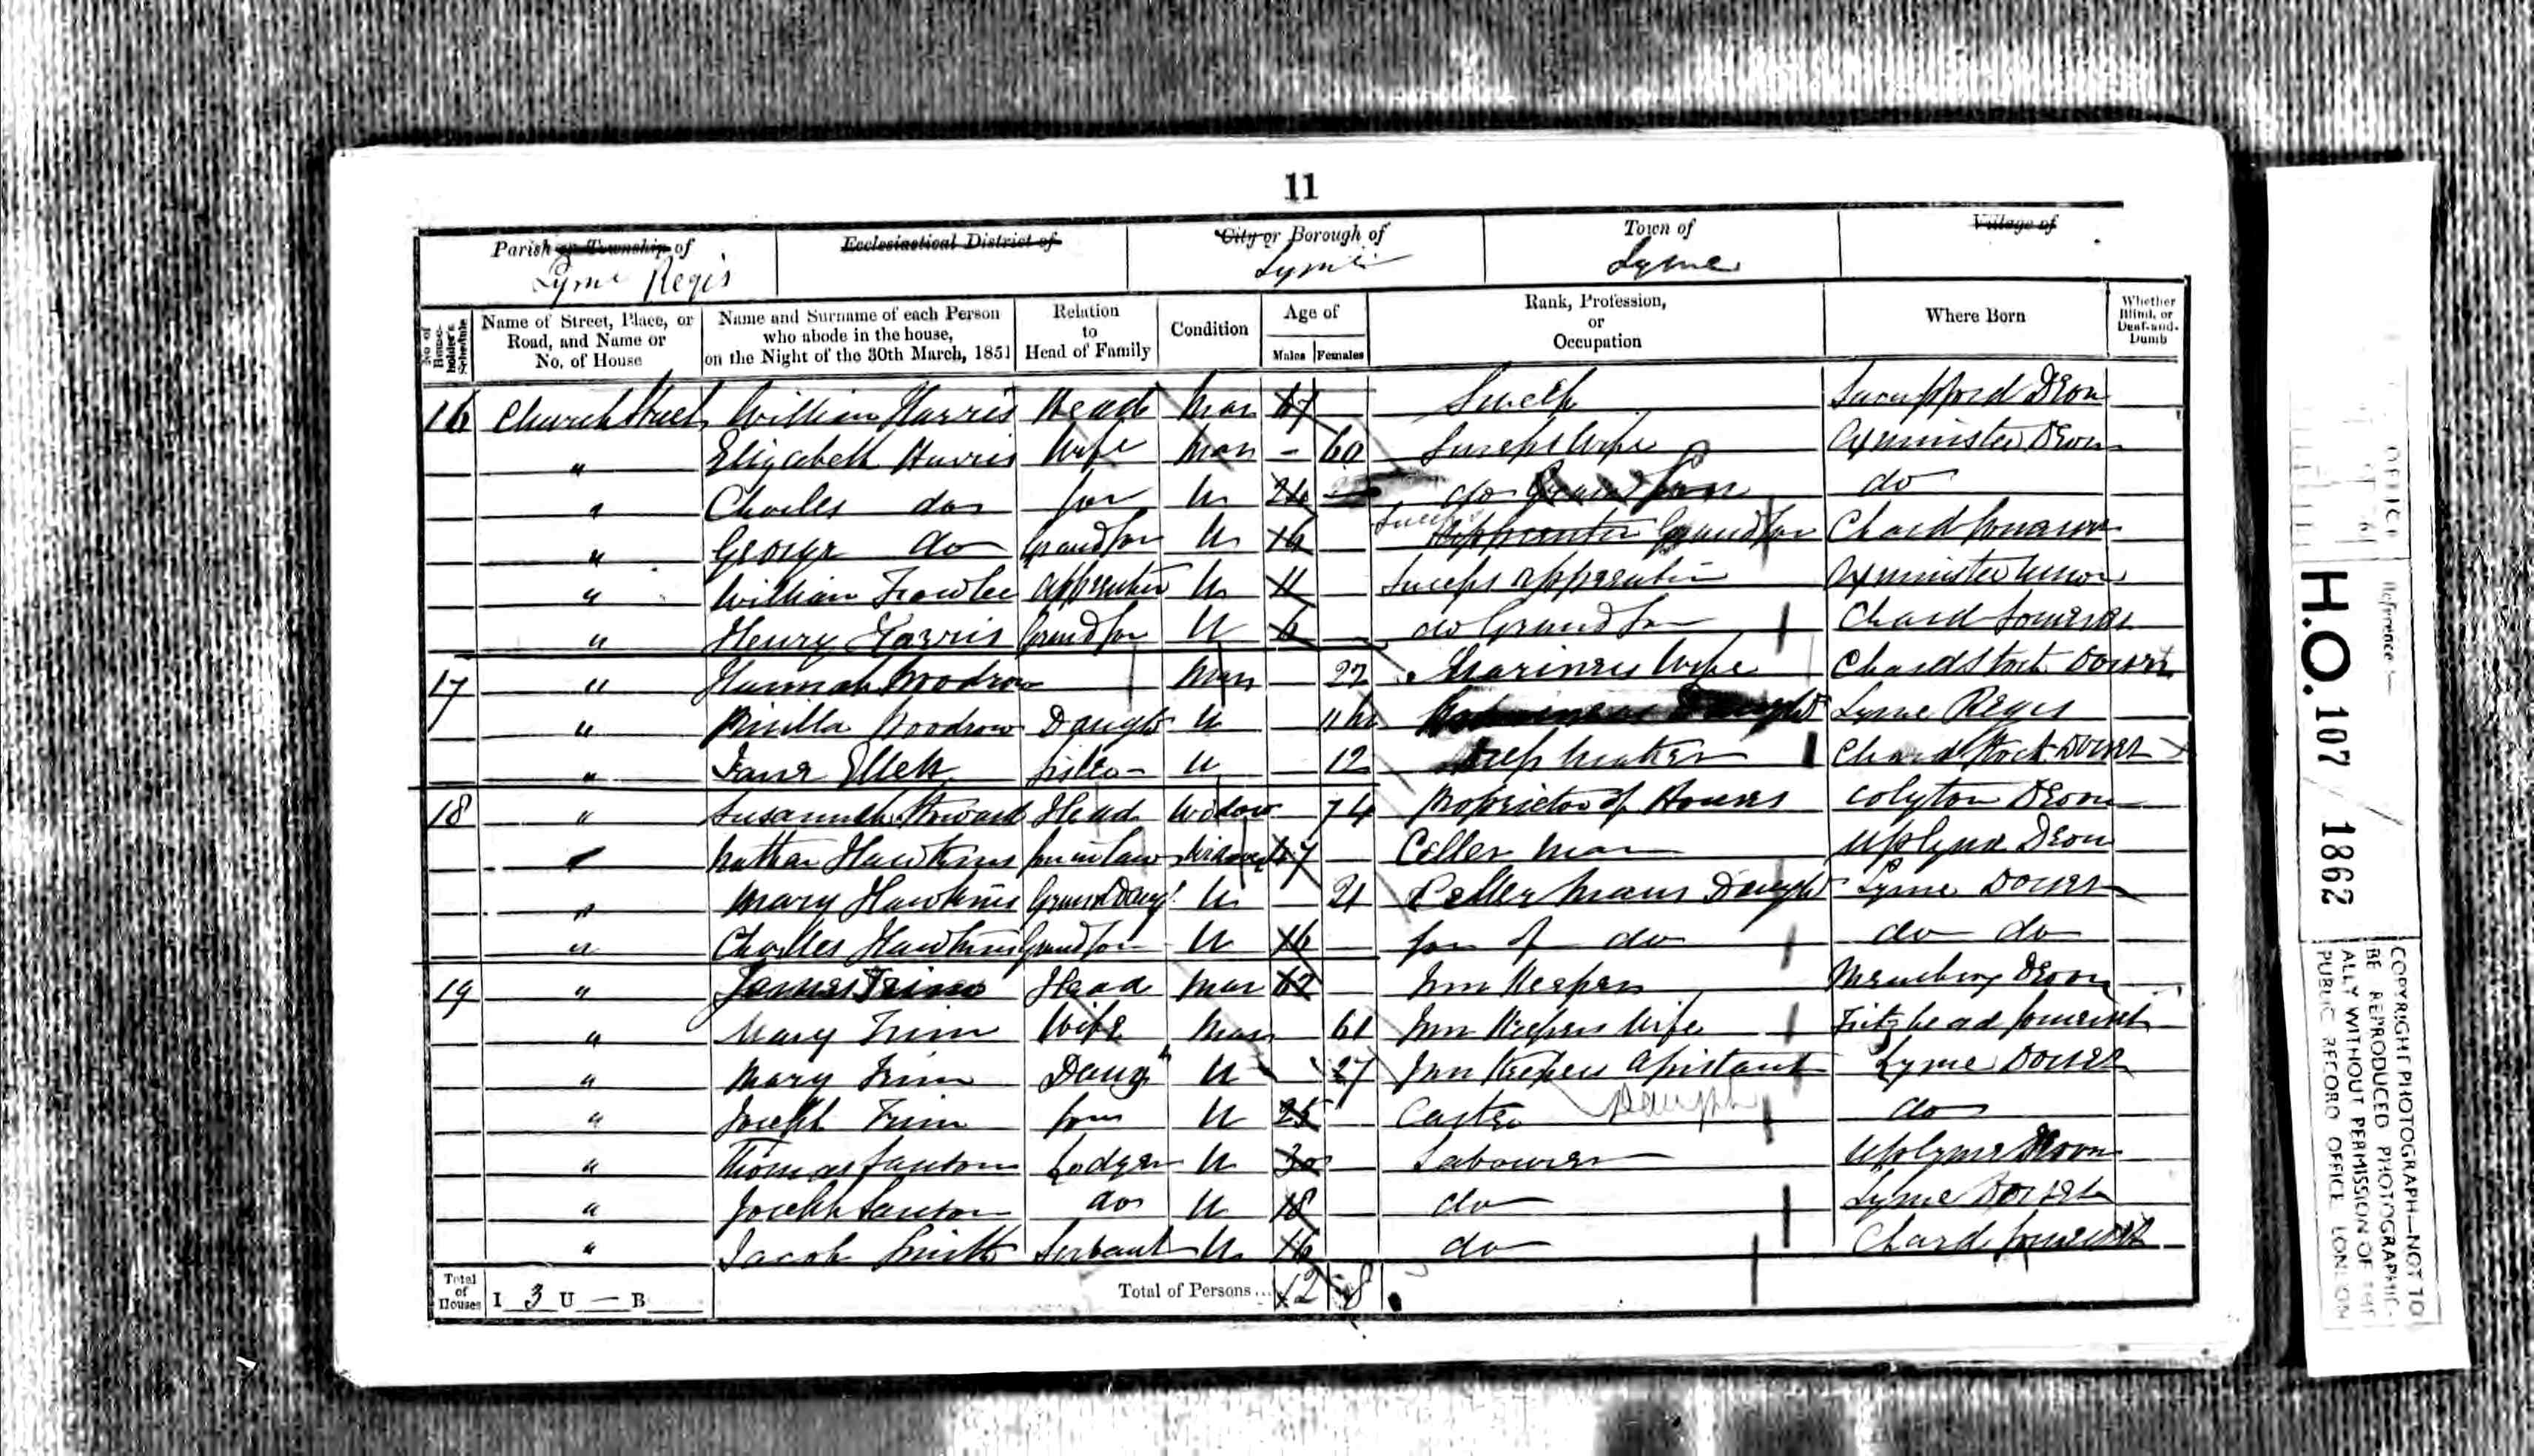 11
Parish or Township of Ecclesiastical District of City or Borough of Town of Village of
Lyme Regis Lyme Lyme
No. of House-holder's Schedule Name of Street, Place, or Road, and Name or No. of House Name and Surname of each Person who abode in the house, on the Night of the 30th March, 1851 Relation to Head of Family Condition Age of Males Females Rank, Profession, or Occupation Where Born Whether Blind, or Deaf-and-Dumb
16 Church Street William Harris Head Mar 67 Sweep Devon
" Elizabeth Harris Wife Mar - 60 Sweeps Wife Axminster Devon
" Charles do Son U do do
" George do Grandson U 16 Grandson Chard Somerset
" William Apprentice U 11 Sweeps Apprentice Axminster Devon
" Henry Harris Grandson U 6 do Grandson Chard Somerset
17 " Hannah Woodrow Mar 27 Mariners Wife Chardstock Dorset
" Woodrow Daught U Lyme Regis
" Jane Sister U 12 Chardstock Dorset
18 " Susannah Head Widow 74 Proprietor of Houses Colyton Devon
" Nathan Hawkins Son in law Widower 47 Celler Man Uplyme Devon
" Mary Hawkins Grand Daugt U 21 Celler Mans Daught Lyme Dorset
" Charles Hawkins Grandson U 16 Son of do do do
19 " James Trim Head Mar 62 Inn Keeper Membury Devon
" Mary Trim Wife Mar 61 Inn Keepers Wife Fitzhead Somerset
" Mary Trim Daugr U 27 Inn Keepers Assistant Lyme Dorset
" Joseph Trim Son U 25 Carter Daughter do
" Thomas Lodger U 30 Labourer Uplyme Devon
" Joseph do U 18 do Lyme Dorset
" Jacob Smith Servant U 16 do Chard Somerset
Total of Houses I 3 U — B Total of Persons... 12 8
Reference :-
H.O. 107 / 1862
COPYRIGHT PHOTOGRAPH—NOT TO BE REPRODUCED PHOTOGRAPHIC-ALLY WITHOUT PERMISSION OF THE PUBLIC RECORD OFFICE LONDON